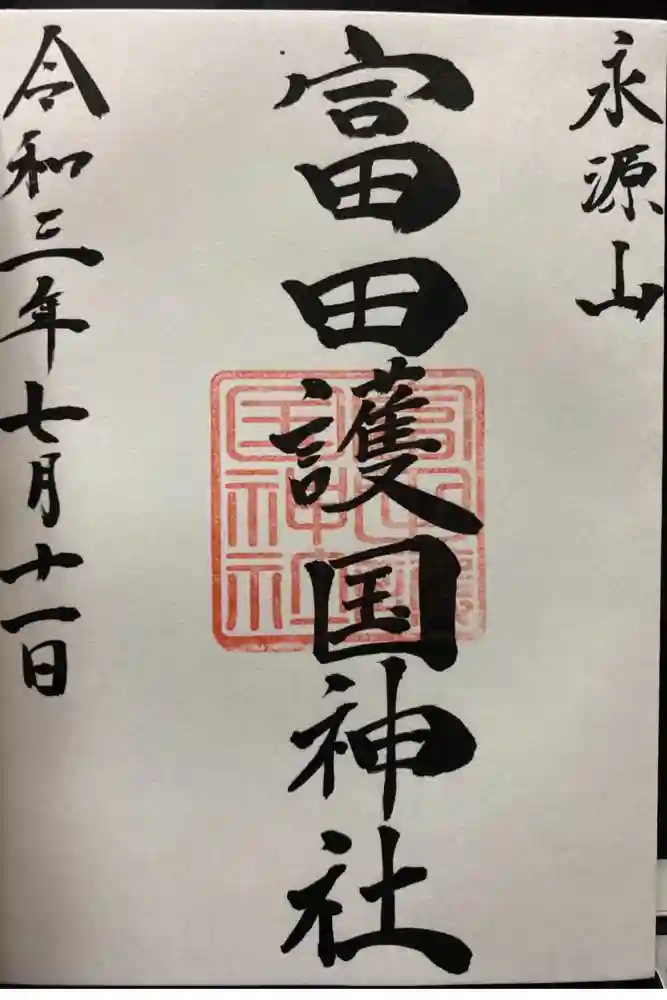 永源山
富田護国神社
令和三年七月十一日